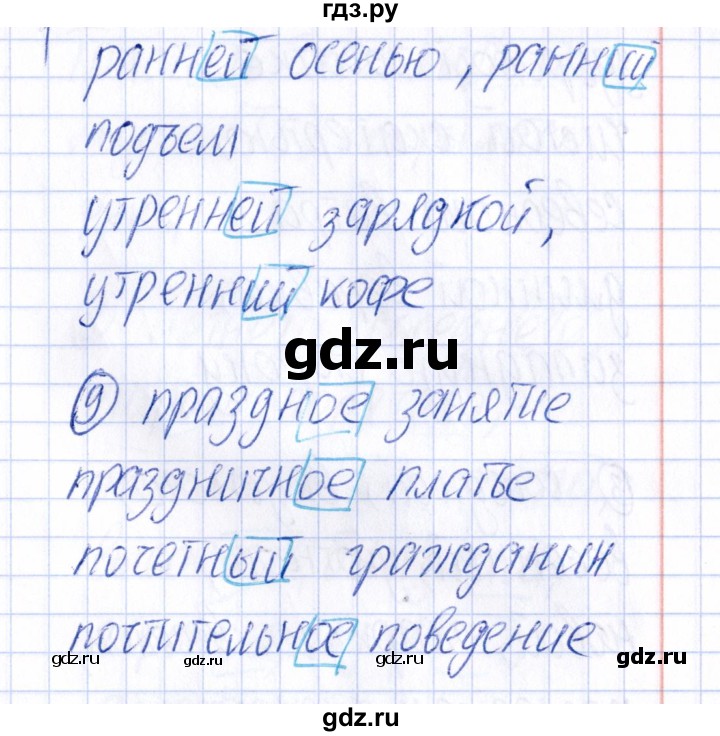 гдз.ру
ранней осенью, ранний
подъем
утренней зарядкой,
утренний кофе
gdz.ru
9 праздное занятие
праздничное платье
почетный гражданин
почтительное поведение
gdz.ru gdz.ru gdz.ru gdz.ru gdz.ru
gdz.ru